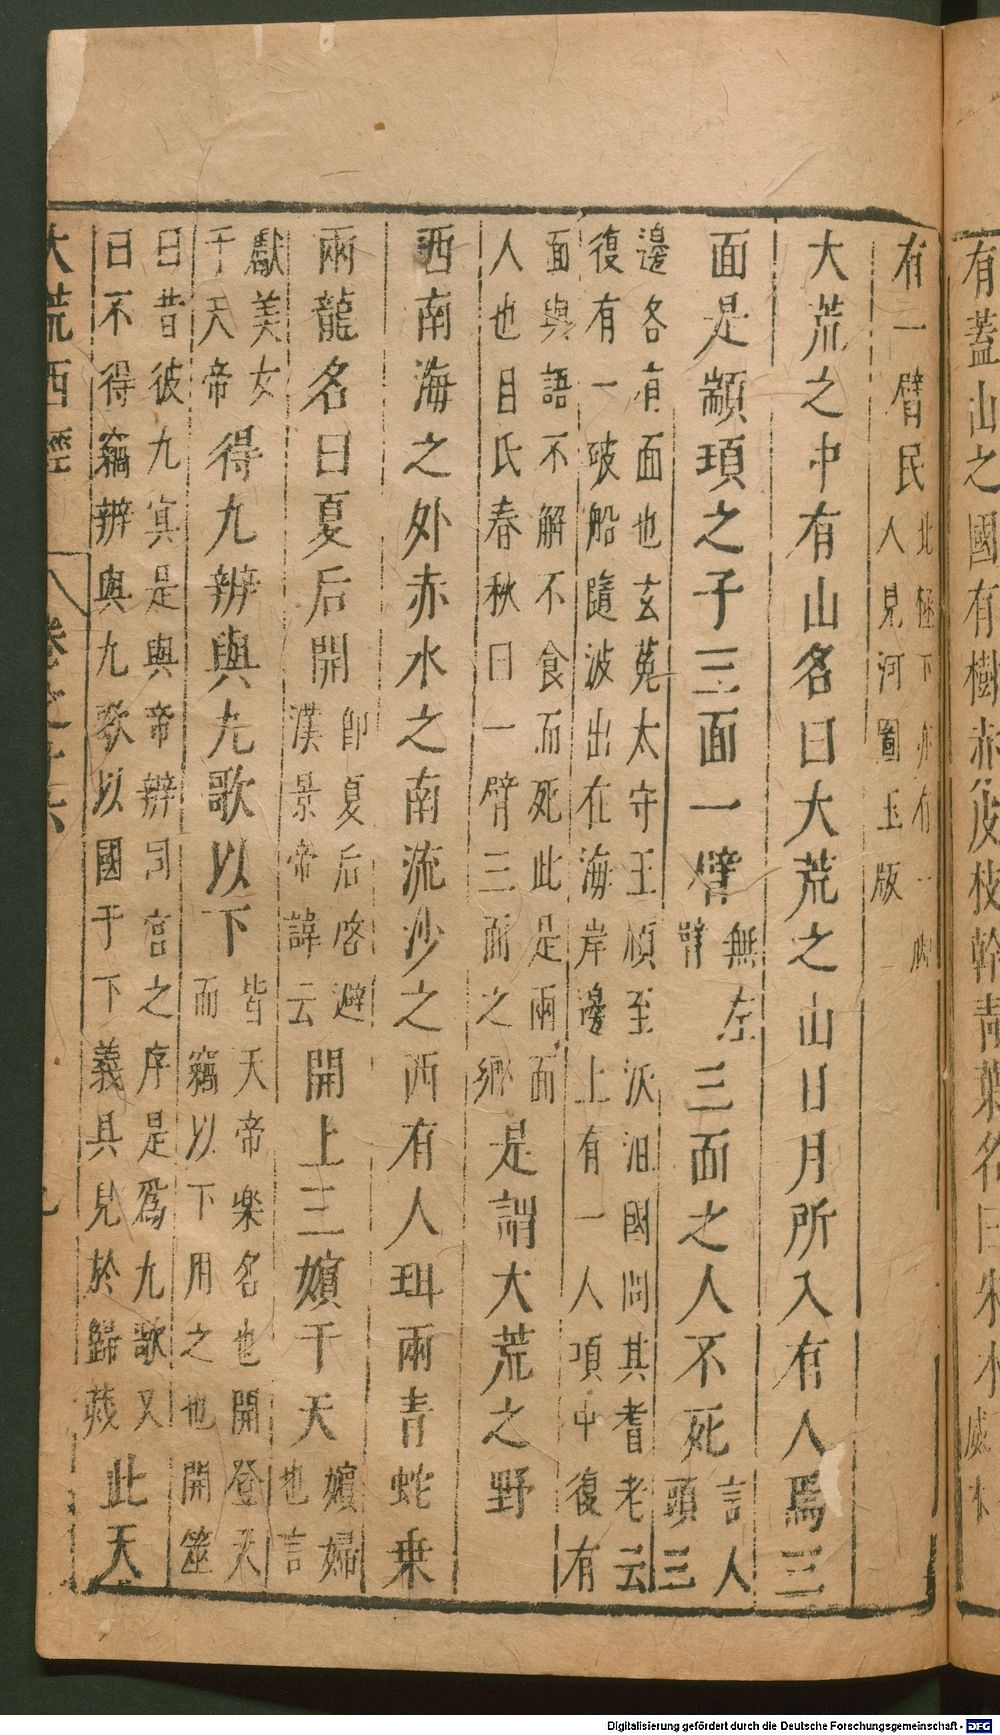 有蓋山之國有樹赤皮枝幹青葉名曰朱木
有一臂民北極下亦有一脚人見河圖玉版
大荒之中有山名曰大荒之山日月所入有人焉三
面是顓頊之子三面一臂無左臂三面之人不死言人頭三
邊各有面也玄菟太守王頎至沃沮國問其耆老云復有一破船隨波出在海岸邊上有一人項中復有
面與語不解不食而死此是兩面人也呂氏春秋曰一臂三面之鄉是謂大荒之野
西南海之外赤水之南流沙之西有人珥兩青蛇乗
兩龍名曰夏后開即夏后啓避漢景帝諱云開上三嬪于天嬪婦也言
獻美女于天帝得九辨與九歌以下皆天帝樂名也開登天而竊以下用之也開筮
曰昔彼九冥是與帝辨同宮之序是爲九歌又曰不得竊辨與九歌以國于下義具見於歸蔵此天
大荒西經 卷之十六 九
Digitalisierung gefördert durch die Deutsche Forschungsgemeinschaft - DFG